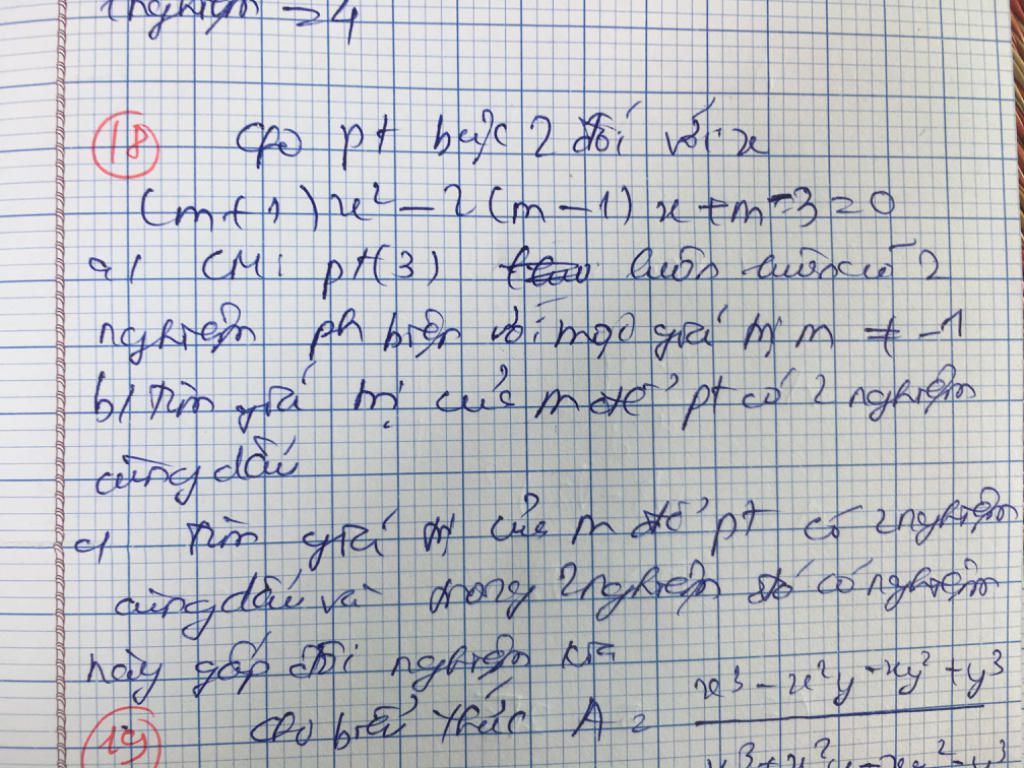 1 nghiệm = 4
18 Cho pt bậc 2 đối với x
(m+1)x² - 2(m-1)x + m-3 = 0
a/ CM: pt(3) luôn luôn có 2
nghiệm ph biện với mọi giá trị m ≠ -1
b/ Tìm giá trị của m để pt có 2 nghiệm
cùng dấu
c/ Tìm giá trị của m để pt có 2 nghiệm
cùng dấu và trong 2 nghiệm đó có nghiệm
này gấp đôi nghiệm kia
19 Cho biểu thức A = x³ - x²y - xy² + y³